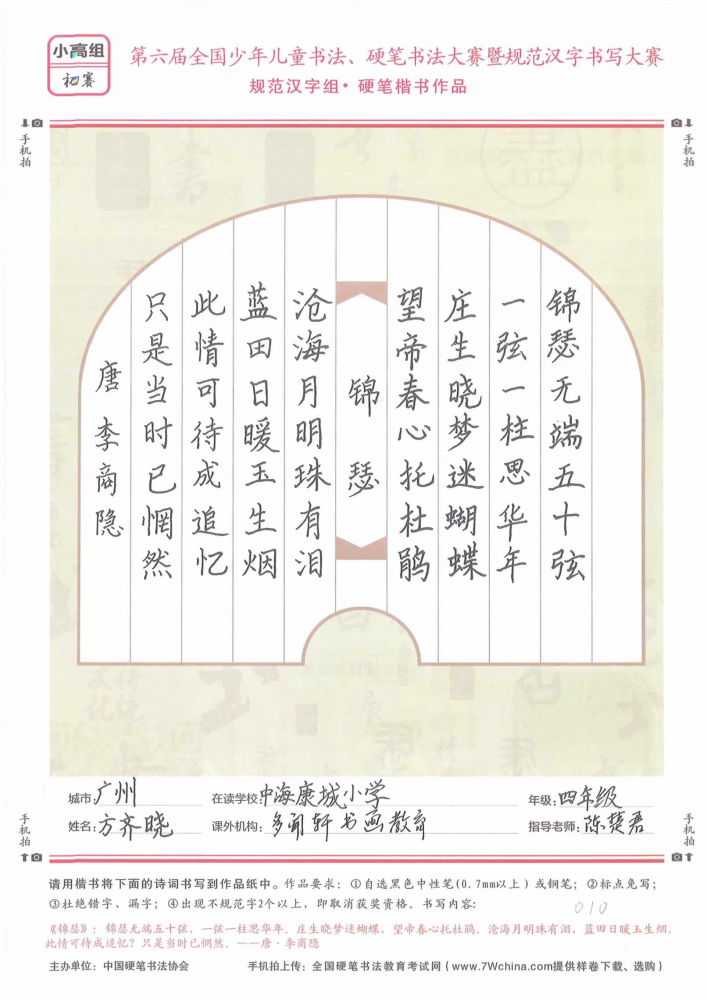 小高组
初赛
第六届全国少年儿童书法、硬笔书法大赛暨规范汉字书写大赛
规范汉字组·硬笔楷书作品
手机拍
手机拍
锦瑟无端五十弦
一弦一柱思华年
庄生晓梦迷蝴蝶
望帝春心托杜鹃
锦瑟
沧海月明珠有泪
蓝田日暖玉生烟
此情可待成追忆
只是当时已惘然
唐李商隐
城市:广州 在读学校:中海康城小学 年级:四年级
姓名:方齐晓 课外机构:多闻轩书画教育 指导老师:陈楚君
手机拍
手机拍
请用楷书将下面的诗词书写到作品纸中。作品要求:①自选黑色中性笔(0.7mm以上)或钢笔;②标点免写;
③杜绝错字、漏字;④出现不规范字2个以上,即取消获奖资格。书写内容:
010
《锦瑟》:锦瑟无端五十弦,一弦一柱思华年。庄生晓梦迷蝴蝶,望帝春心托杜鹃。沧海月明珠有泪,蓝田日暖玉生烟。
此情可待成追忆?只是当时已惘然。——唐·李商隐
主办单位:中国硬笔书法协会 手机拍上传:全国硬笔书法教育考试网(www.7Wchina.com提供样卷下载、选购)